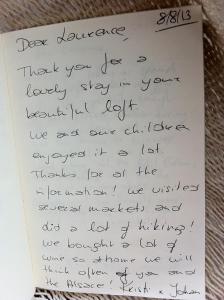 8/8/13
Dear Laurence,
Thank you for a
lovely stay in your
beautiful loft
we and our children
enjoyed it a lot.
Thanks for al the
information! we visited
several markets and
did a lot of hiking!
we bought a lot of
wine so athome we will
think often of you and
the Alsace! Kristi x Johan